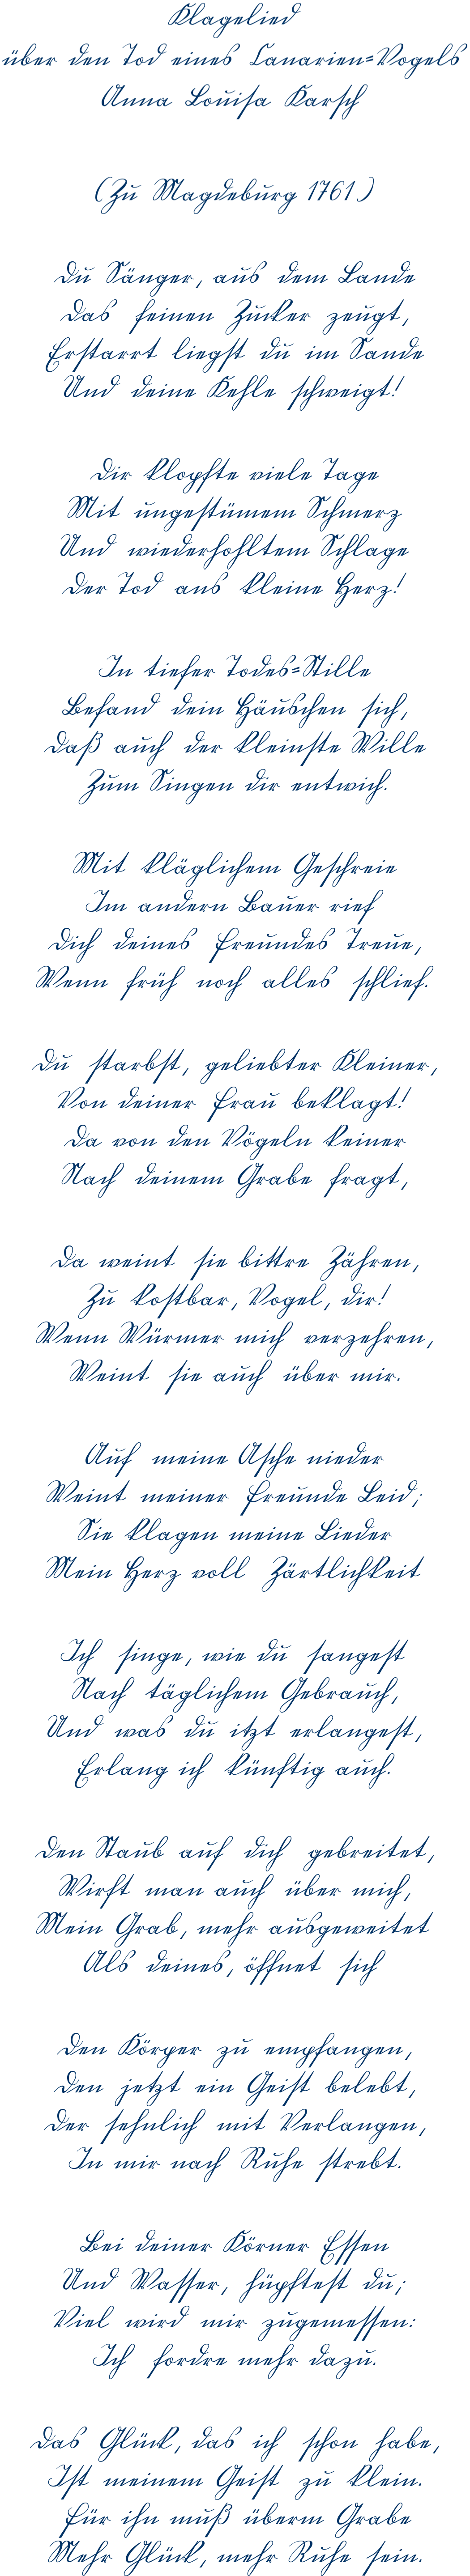 Klagelied
über den Tod eines Canarien=Vogels
Anna Louisa Karsch
(Zu Magdeburg 1761.)
Du Sänger, aus dem Lande
Das feinen Zucker zeugt,
Erstarrt liegst du im Sande
Und deine Kehle schweigt!
Dir klopfte viele Tage
Mit ungestümem Schmerz
Und wiederhohltem Schlage
Der Tod ans kleine Herz!
In tiefer Todes=Stille
Befand dein Häuschen sich,
Daß auch der kleinste Wille
Zum Singen dir entwich.
Mit kläglichem Geschreie
Im andern Bauer rief
Dich deines Freundes Treue,
Wenn früh noch alles schlief.
Du starbst, geliebter Kleiner,
Von deiner Frau beklagt!
Da von den Vögeln keiner
Nach deinem Grabe fragt,
Da weint sie bittre Zähren,
Zu kostbar, Vogel, dir!
Wenn Würmer mich verzehren,
Weint sie auch über mir.
Auf meine Asche nieder
Weint meiner Freunde Leid;
Sie klagen meine Lieder
Mein Herz voll Zärtlichkeit
Ich singe, wie du sangest
Nach täglichem Gebrauch,
Und was du itzt erlangest,
Erlang ich künftig auch.
Den Staub auf dich gebreitet,
Wirft man auch über mich,
Mein Grab, mehr ausgeweitet
Als deines, öffnet sich
Den Körper zu empfangen,
Den jetzt ein Geist belebt,
Der sehnlich mit Verlangen,
In mir nach Ruhe strebt.
Bei deiner Körner Essen
Und Wasser, hüpftest du;
Viel wird mir zugemessen:
Ich fordre mehr dazu.
Das Glück, das ich schon habe,
Ist meinem Geist zu klein.
Für ihn muß überm Grabe
Mehr Glück, mehr Ruhe sein.